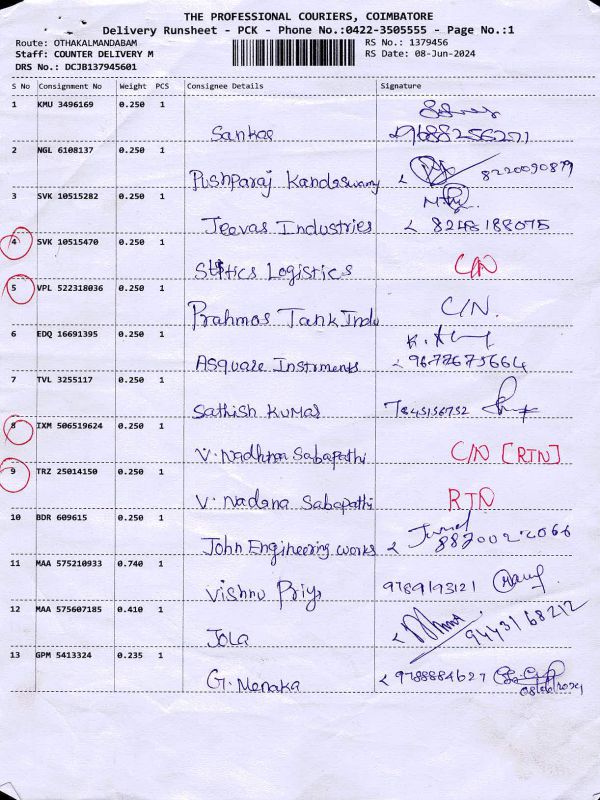 THE PROFESSIONAL COURIERS, COIMBATORE
Delivery Runsheet - PCK - Phone No.:0422-3505555 - Page No.:1
Route: OTHAKALMANDABAM RS No.: 1379456
Staff: COUNTER DELIVERY M RS Date: 08-Jun-2024
DRS No.: DCJB137945601
S No Consignment No Weight PCS Consignee Details Signature
1 KMU 3496169 0.250 1
Sankar 9688256271
2 NGL 6108137 0.250 1
Pushparaj Kandaswamy 8220090879
3 SVK 10515282 0.250 1
Jeevas Industries 8248188075
4 SVK 10515470 0.250 1
Logistics C/N
5 VPL 522318036 0.250 1
Prahmos Tank Indu C/N.
6 EDQ 16691395 0.250 1
Asquare Instrments 9677675664
7 TVL 3255117 0.250 1
Sathish Kumar 7845156752
8 IXM 506519624 0.250 1
V. Sabapathi C/N [RTN]
9 TRZ 25014150 0.250 1
V. Nadana Sabapathi RTN
10 BDR 609615 0.250 1
John Engineering works
11 MAA 575210933 0.740 1
Vishnu Priya 9789193121
12 MAA 575607185 0.410 1
Jola 9443168212
13 GPM 5413324 0.235 1
G. Menaka 9788884627
08/06/2024